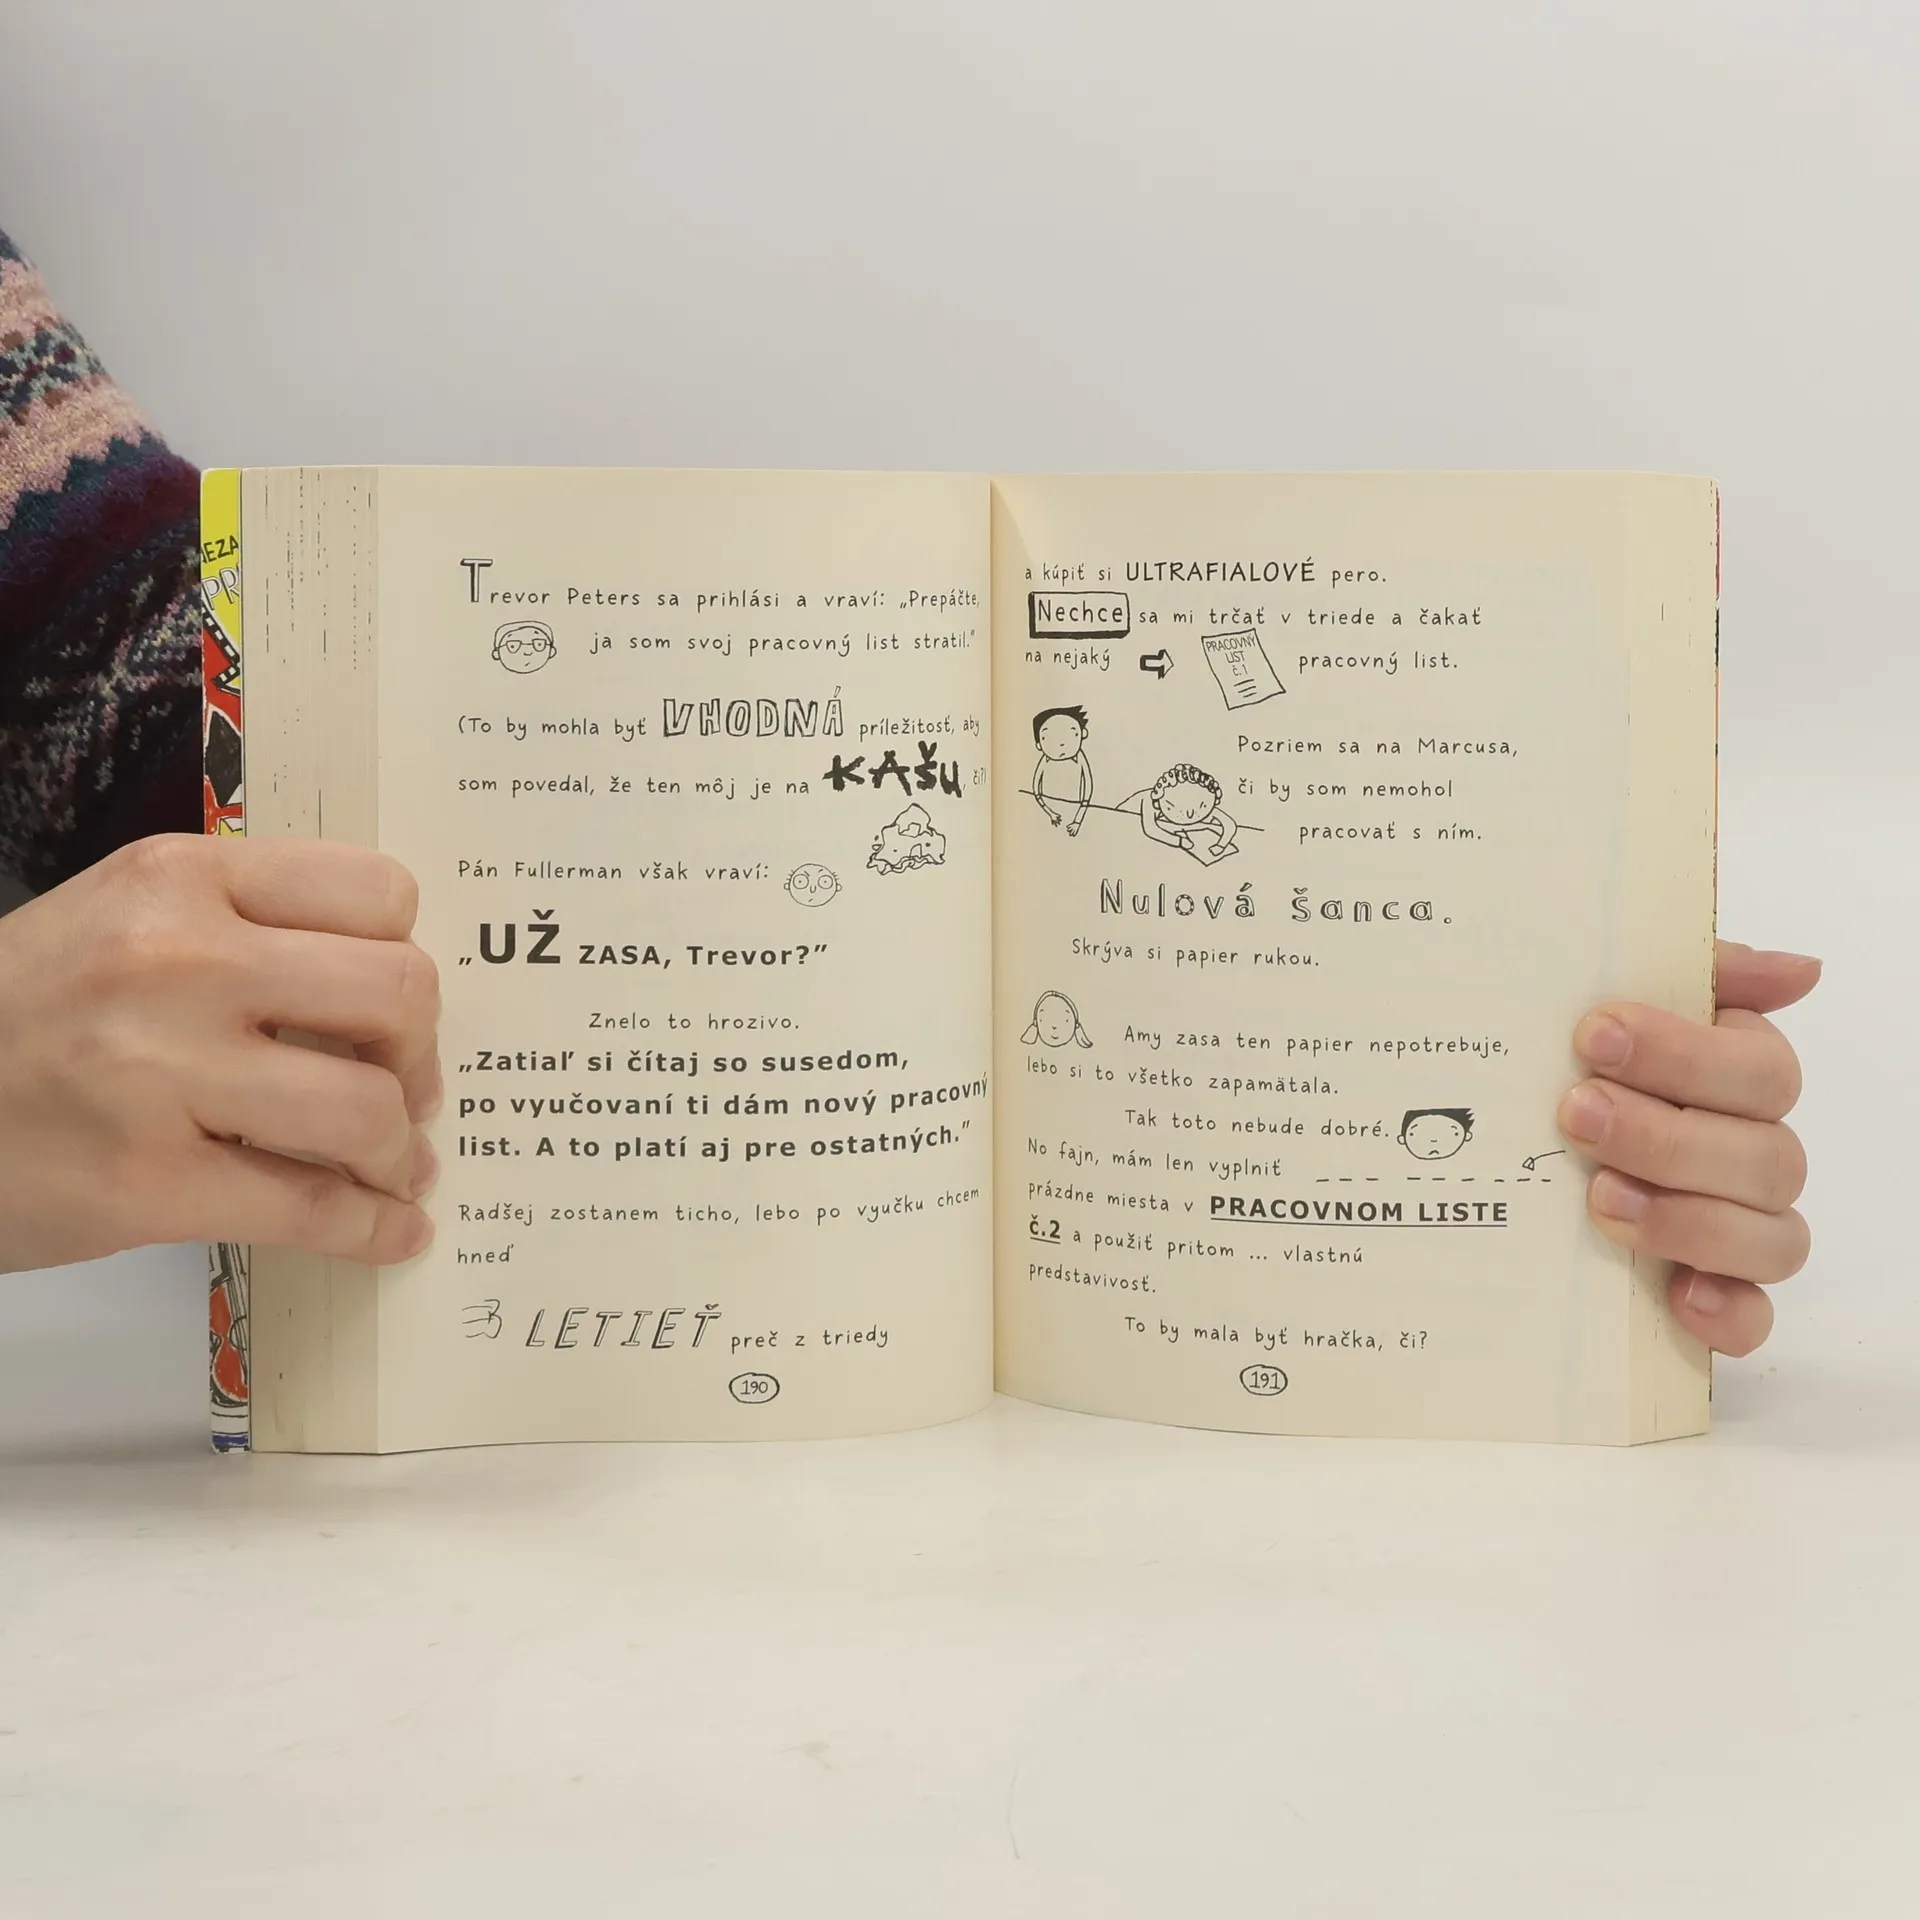 Trevor Peters sa prihlási a vraví: „Prepáčte,
ja som svoj pracovný list stratil."
(To by mohla byť VHODNÁ príležitosť, aby
som povedal, že ten môj je na KAŠU, či?)
Pán Fullerman však vraví:
„UŽ ZASA, Trevor?”
Znelo to hrozivo.
„Zatiaľ si čítaj so susedom,
po vyučovaní ti dám nový pracovný
list. A to platí aj pre ostatných.”
Radšej zostanem ticho, lebo po vyučku chcem
hneď
LETIEŤ preč z triedy
190
a kúpiť si ULTRAFIALOVÉ pero.
Nechce sa mi trčať v triede a čakať
na nejaký pracovný list.
PRACOVNÝ
LIST
č.1
Pozriem sa na Marcusa,
či by som nemohol
pracovať s ním.
Nulová šanca.
Skrýva si papier rukou.
Amy zasa ten papier nepotrebuje,
lebo si to všetko zapamätala.
Tak toto nebude dobré.
No fajn, mám len vyplniť
prázdne miesta v PRACOVNOM LISTE
č.2 a použiť pritom ... vlastnú
predstavivosť.
To by mala byť hračka, či?
191